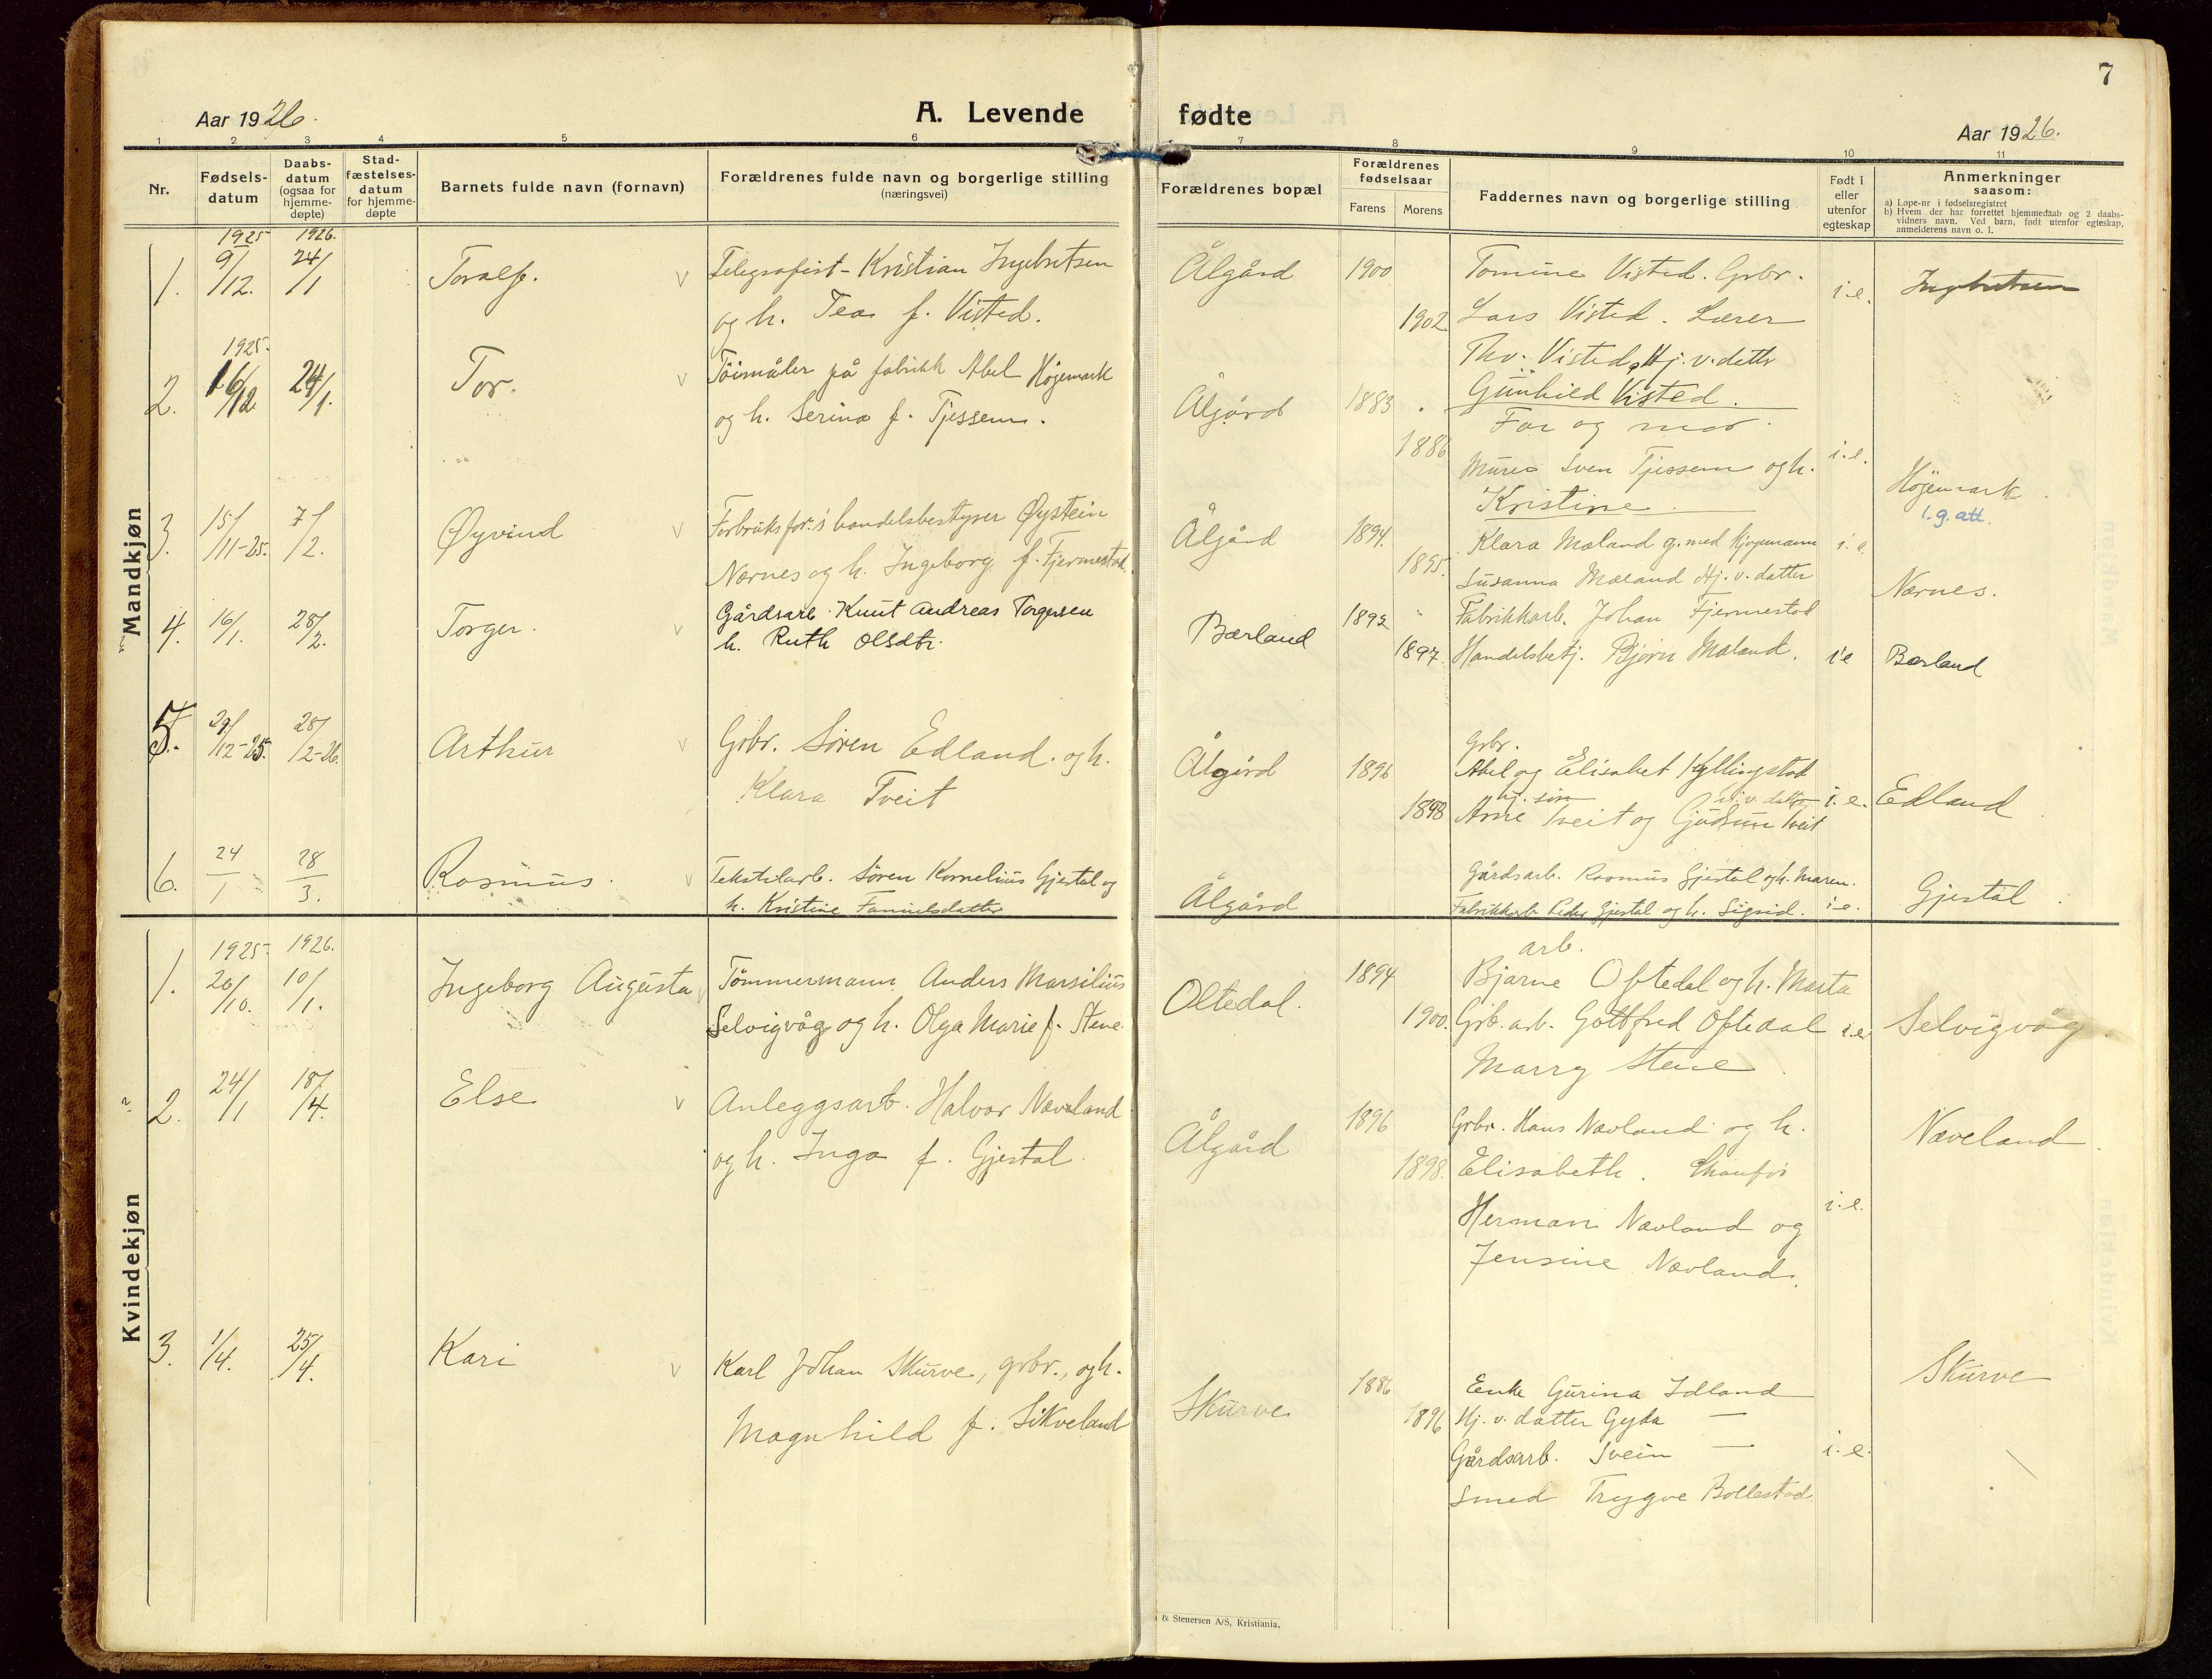 7
Aar 1926.
A. Levende fødte
Aar 1926.
1 2 3 4 5 6 7 8 9 10 11
Nr.
Fødsels-
datum
Daabs-
datum
(ogsaa for
hjemme-
døpte)
Stad-
fæstelses-
datum
for hjemme-
døpte
Barnets fulde navn (fornavn)
Forældrenes fulde navn og borgerlige stilling
(næringsvei)
Forældrenes bopæl
Forældrenes
fødselsaar
Farens Morens
Faddernes navn og borgerlige stilling
Født i
eller
utenfor
egteskap
Anmerkninger
saasom:
a) Løpe-nr i fødselsregistret
b) Hvem der har forrettet hjemmedaab og 2 daabs-
vidners navn. Ved barn, født utenfor egteskap,
anmelderens navn o. l.
Mandkjøn
1925 1926.
1. 9/12. 24/1 Toralf. v
Telegrafist - Kristian Ingebretsen
og h. Tea f. Visted.
Ålgård 1900 1902
Tomine Visted. Grbr.
Lars Visted. Lærer
Thv. Visted, Hj. v. datter
Gunhild Visted.
i.e. Ingebretsen
1925.
2. 16/12 24/1. Tor. v
Töimåler på fabrikk Abel Högemark
og h. Serina f. Tjessem.
Ålgård 1883 1886
Far og mor.
Murer Sven Tjessem og h.
Kristine
i.e. Högemark.
1.g. att.
3. 15/11-25. 7/2. Øyvind v
Forbruksfor.'s handelsbestyrer Øystein
Nærnes og h. Ingeborg f. Fjermestad.
Ålgård 1894. 1895.
Klara Mæland g. med kjøpmann
Susanna Mæland Hj. v. datter
Fabrikkarb. Johan Fjermestad
Handelsbetj. Bjørn Mæland.
i.e. Nærnes.
4. 16/1. 28/2. Torger. v
Gårdsarb. Knut Andreas Torgersen
h. Ruth Olsdtr.
Bærland 1892 1897.
i e Bærland
5. 29/12-25. 28/2-26. Arthur v
Grbr. Søren Edland. og h.
Klara Tveit
Ålgård 1896 1898
Grbr.
Abel og Elisabet Kyllingstad
hj. søn hj. v. datter
Arne Tveit og Gudrun Tveit
i.e. Edland
6. 24/1 28/3. Rasmus. v
Tekstilarb. Søren Kornelius Gjestal og
h. Kristine Fannielsdatter
Ålgård
Gårdsarb. Rasmus Gjestal og h. Maren.
Fabrikkarb Peder Gjestal og h. Sigrid.
i.e. Gjestal.
Kvindekjøn
1925. 1926.
1. 20/10. 10/1. Ingeborg Augusta v
Tømmermann Anders Marsilius
Selvigvåg og h. Olga Marie f. Stene
Oltedal. 1894 1900.
arb.
Bjarne Oftedal og h. Marta
Grb. arb. Gottfred Oftedal
Marry Stene
i.e. Selvigvåg
2. 24/1 18/4. Else v
Anleggsarb. Halvor Næveland
og h. Inga f. Gjestal.
Ålgård 1896 1898.
Grbr. Hans Nævland og h.
Elisabeth. Chauför
Herman Nævland og
Jensine Nævland.
i.e. Næveland
3. 1/4. 25/4. Kari v
Karl Johan Skurve, grbr., og h.
Magnhild f. Sikveland
Skurve 1886 1896
Enke Gurina Idland
Hj. v. datter Gyda —
Gårdsarb. Svein —
Smed Trygve Bollestad.
i.e. Skurve
& Stenersen A/S, Kristiania.